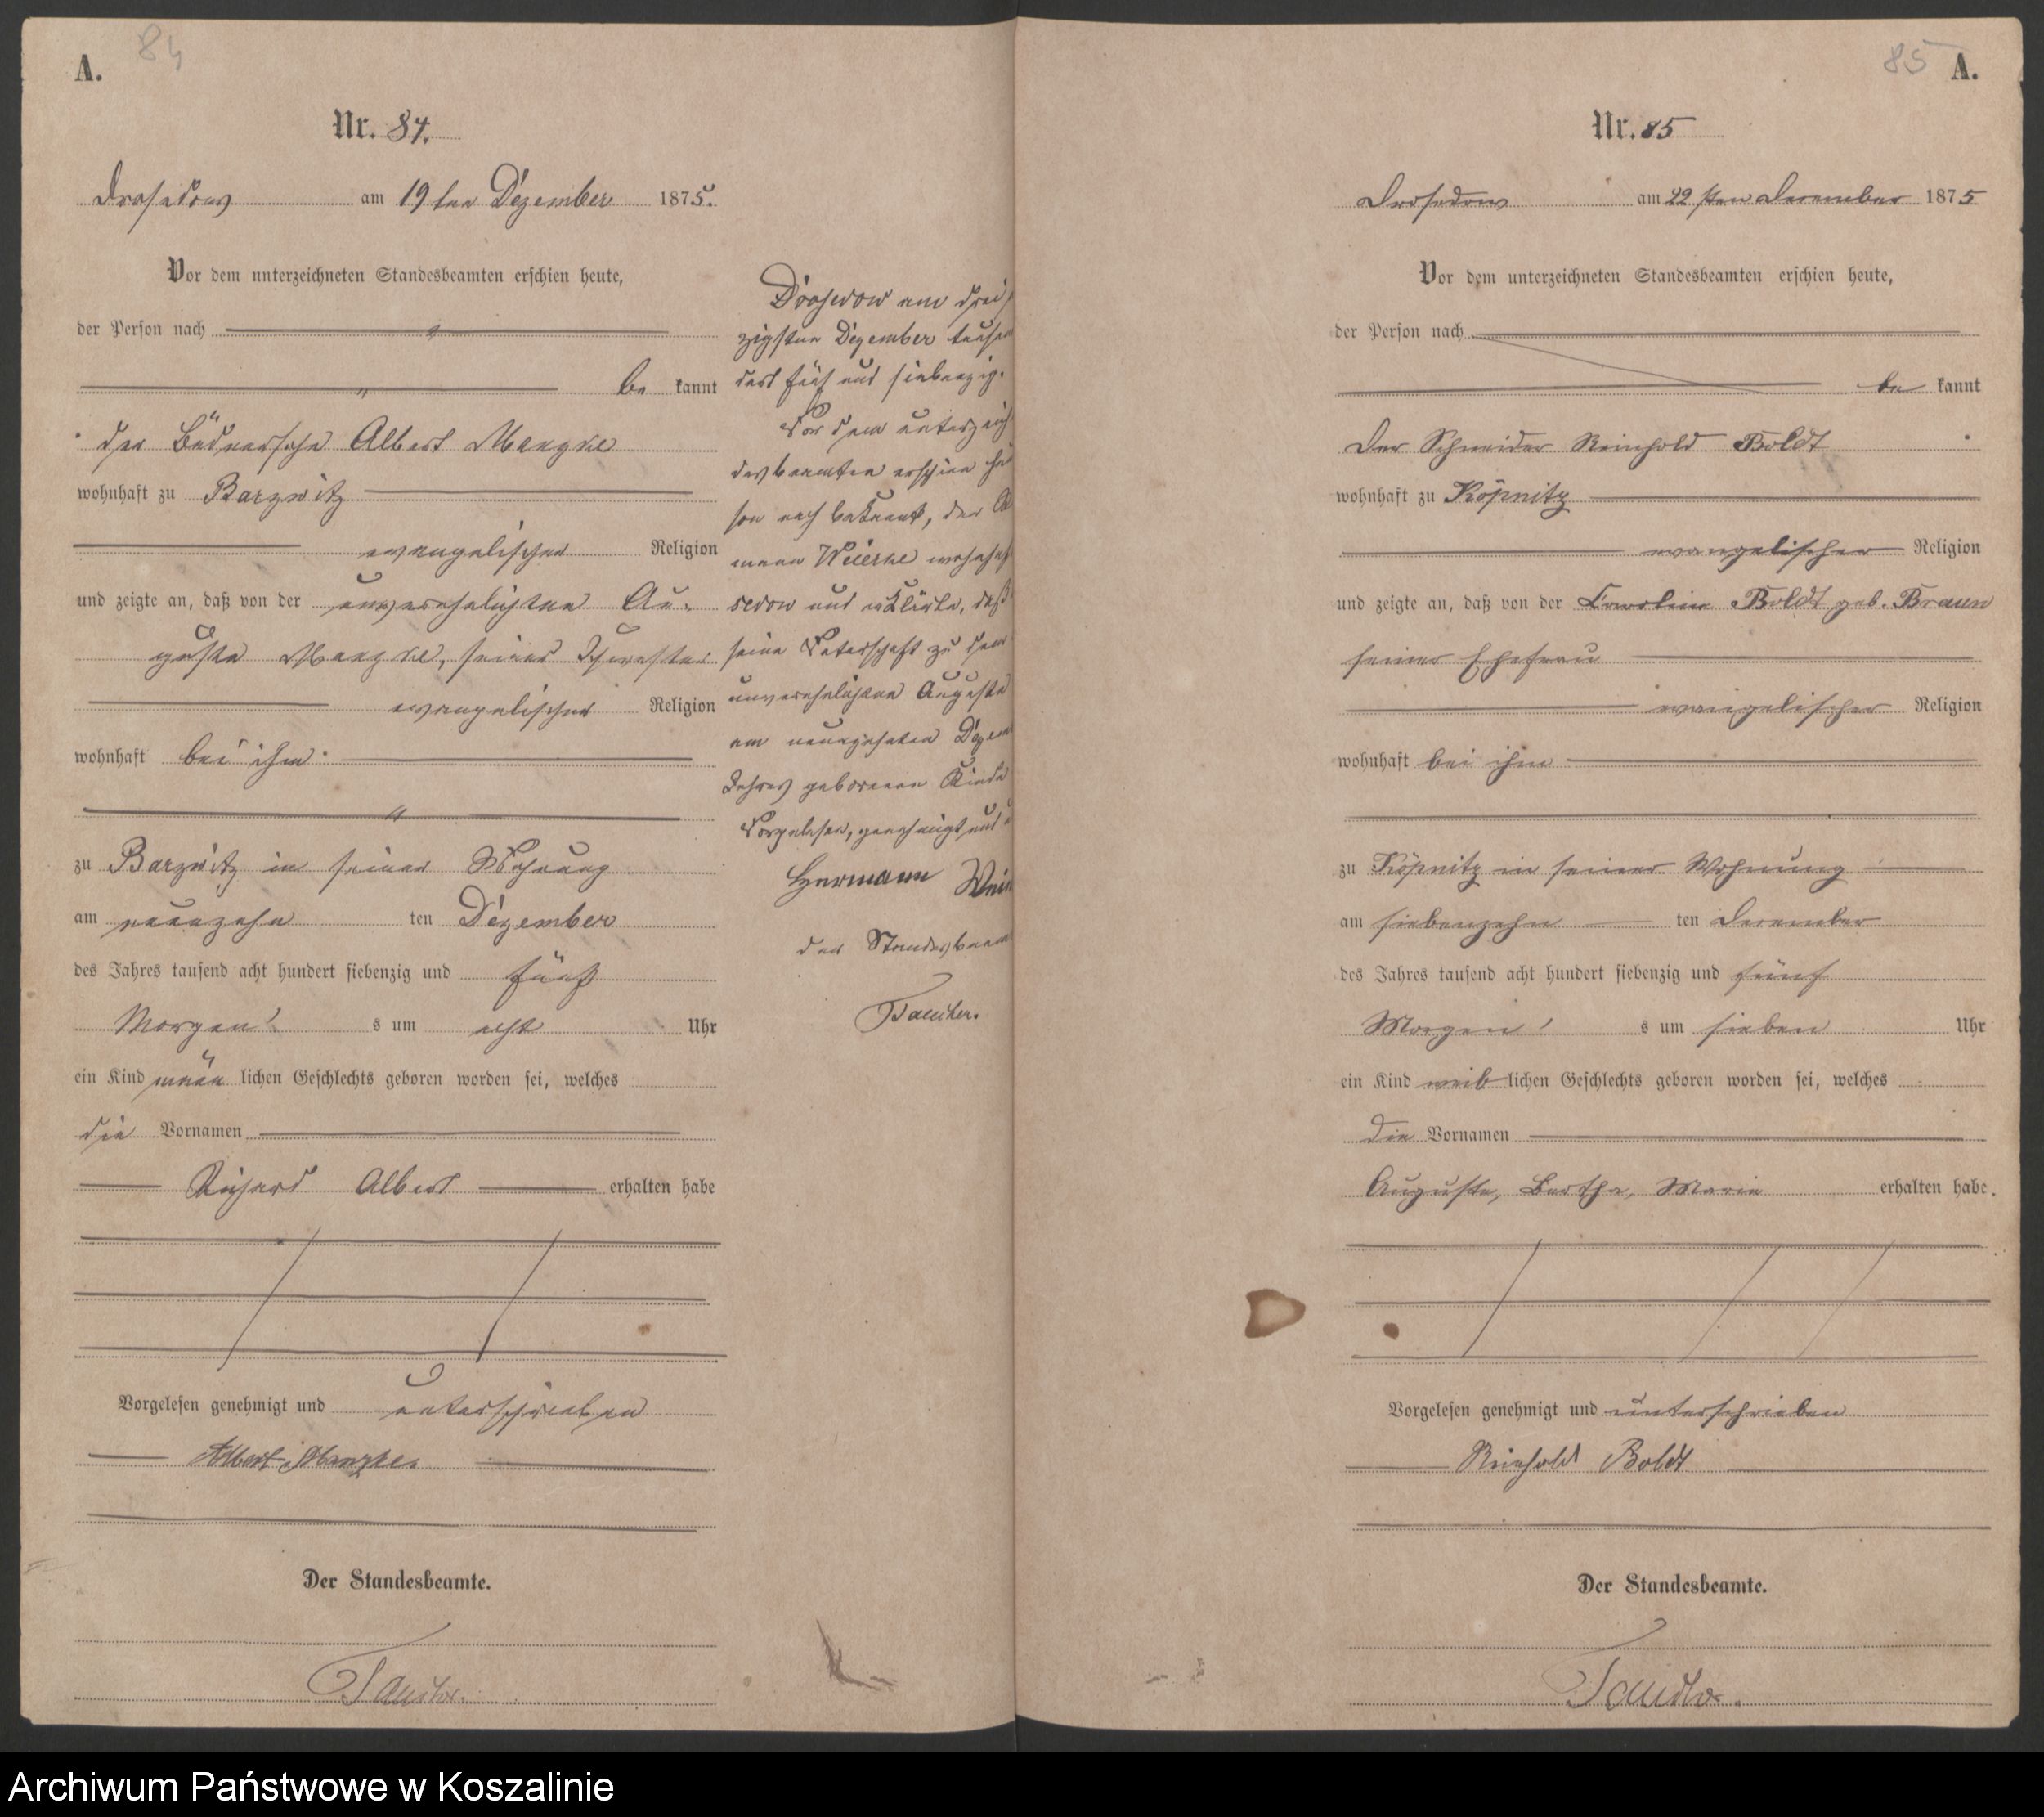 84
A.
Nr. 84.
Drosedow am 19ten Dezember 1875.
Vor dem unterzeichneten Standesbeamten erschien heute,
der Person nach
be kannt
der Büdnersohn Albert Manzke
wohnhaft zu Barzwitz
evangelischer Religion
und zeigte an, daß von der unverehelichten Au-
guste Manzke, seiner Schwester
evangelischer Religion
wohnhaft bei ihm
zu Barzwitz in seiner Wohnung
am neunzehn ten Dezember
des Jahres tausend acht hundert siebenzig und fünf
Morgen s um acht Uhr
ein Kind männ lichen Geschlechts geboren worden sei, welches
die Vornamen
Richard Albert erhalten habe
Vorgelesen genehmigt und unterschrieben
Albert Manzke.
Der Standesbeamte.
Drosedow am drei
zigsten Dezember tausen
dert fünf und siebenzig.
Vor dem unterzeich
desbeamten erschien heu
son nach bekannt, der
mann wohnhaft
sedow und erklärte, daß
seine Vaterschaft zu dem
unverehelichten Auguste
am neunzehnten Dezem
Jahres geborenen Kinde
Vorgelesen, genehmigt und u
Hermann
der Standesbeam
85 A.
Nr. 85
Drosedow am 22 sten December 1875
Vor dem unterzeichneten Standesbeamten erschien heute,
der Person nach
be kannt
Der Schneider Reinhold Boldt
wohnhaft zu Köpnitz
evangelischer Religion
und zeigte an, daß von der Caroline Boldt geb. Braun
seiner Ehefrau
evangelischer Religion
wohnhaft bei ihm
zu Köpnitz in seiner Wohnung
am siebenzehn ten December
des Jahres tausend acht hundert siebenzig und fünf
Morgen s um sieben Uhr
ein Kind weib lichen Geschlechts geboren worden sei, welches
die Vornamen
Auguste, Bertha, Marie erhalten habe.
Vorgelesen genehmigt und unterschrieben
Reinhold Boldt
Der Standesbeamte.
Archiwum Państwowe w Koszalinie